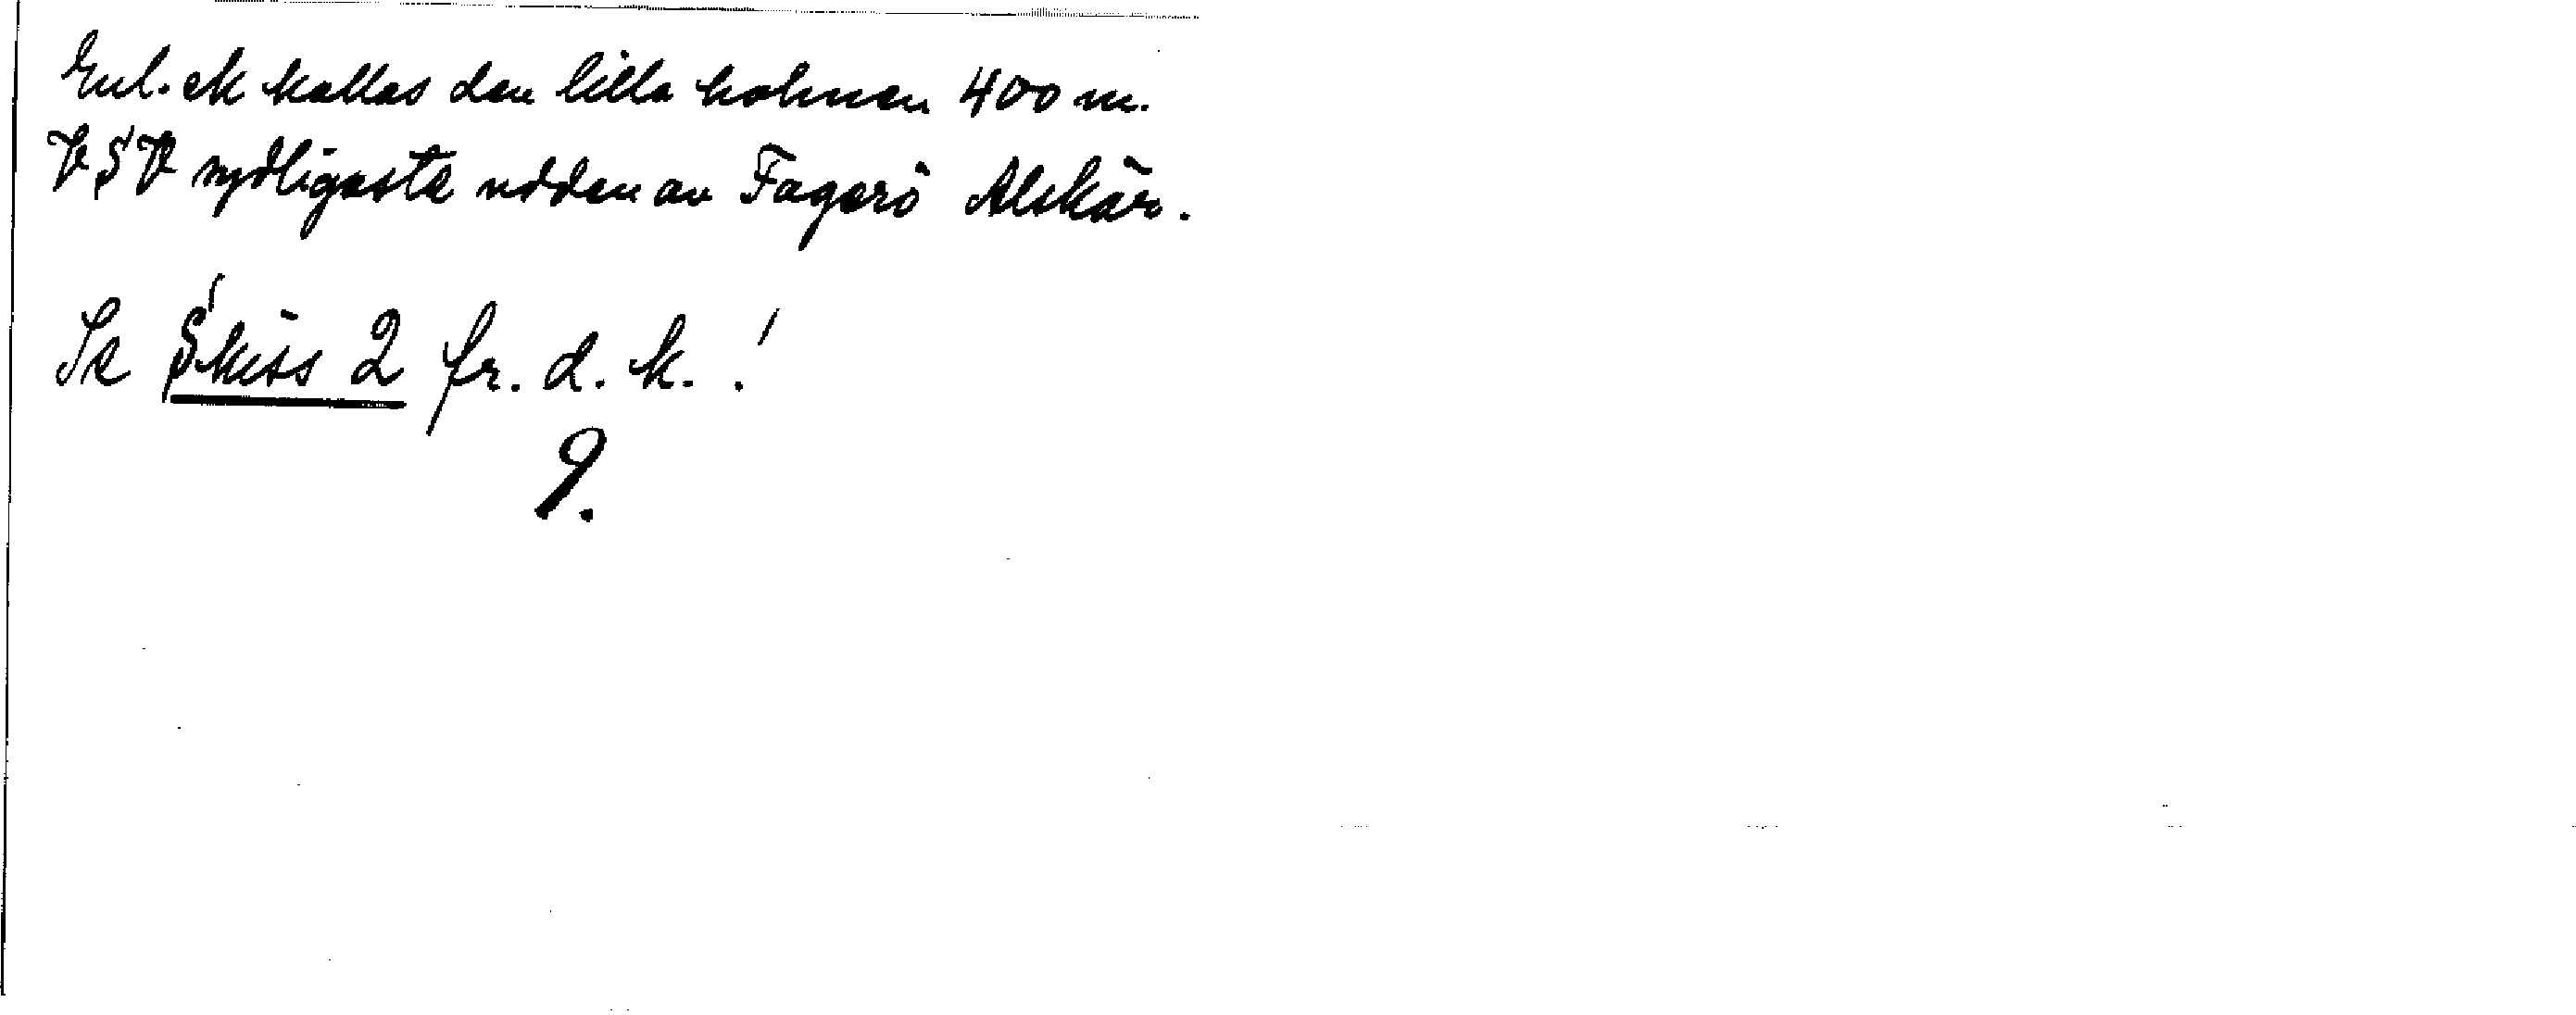 Enl. ek kallas den lilla holmen 400 m.
VSV sydligaste udden av Fagerö Alskär.
Se Skiss 2 fr. d. k.!
9.